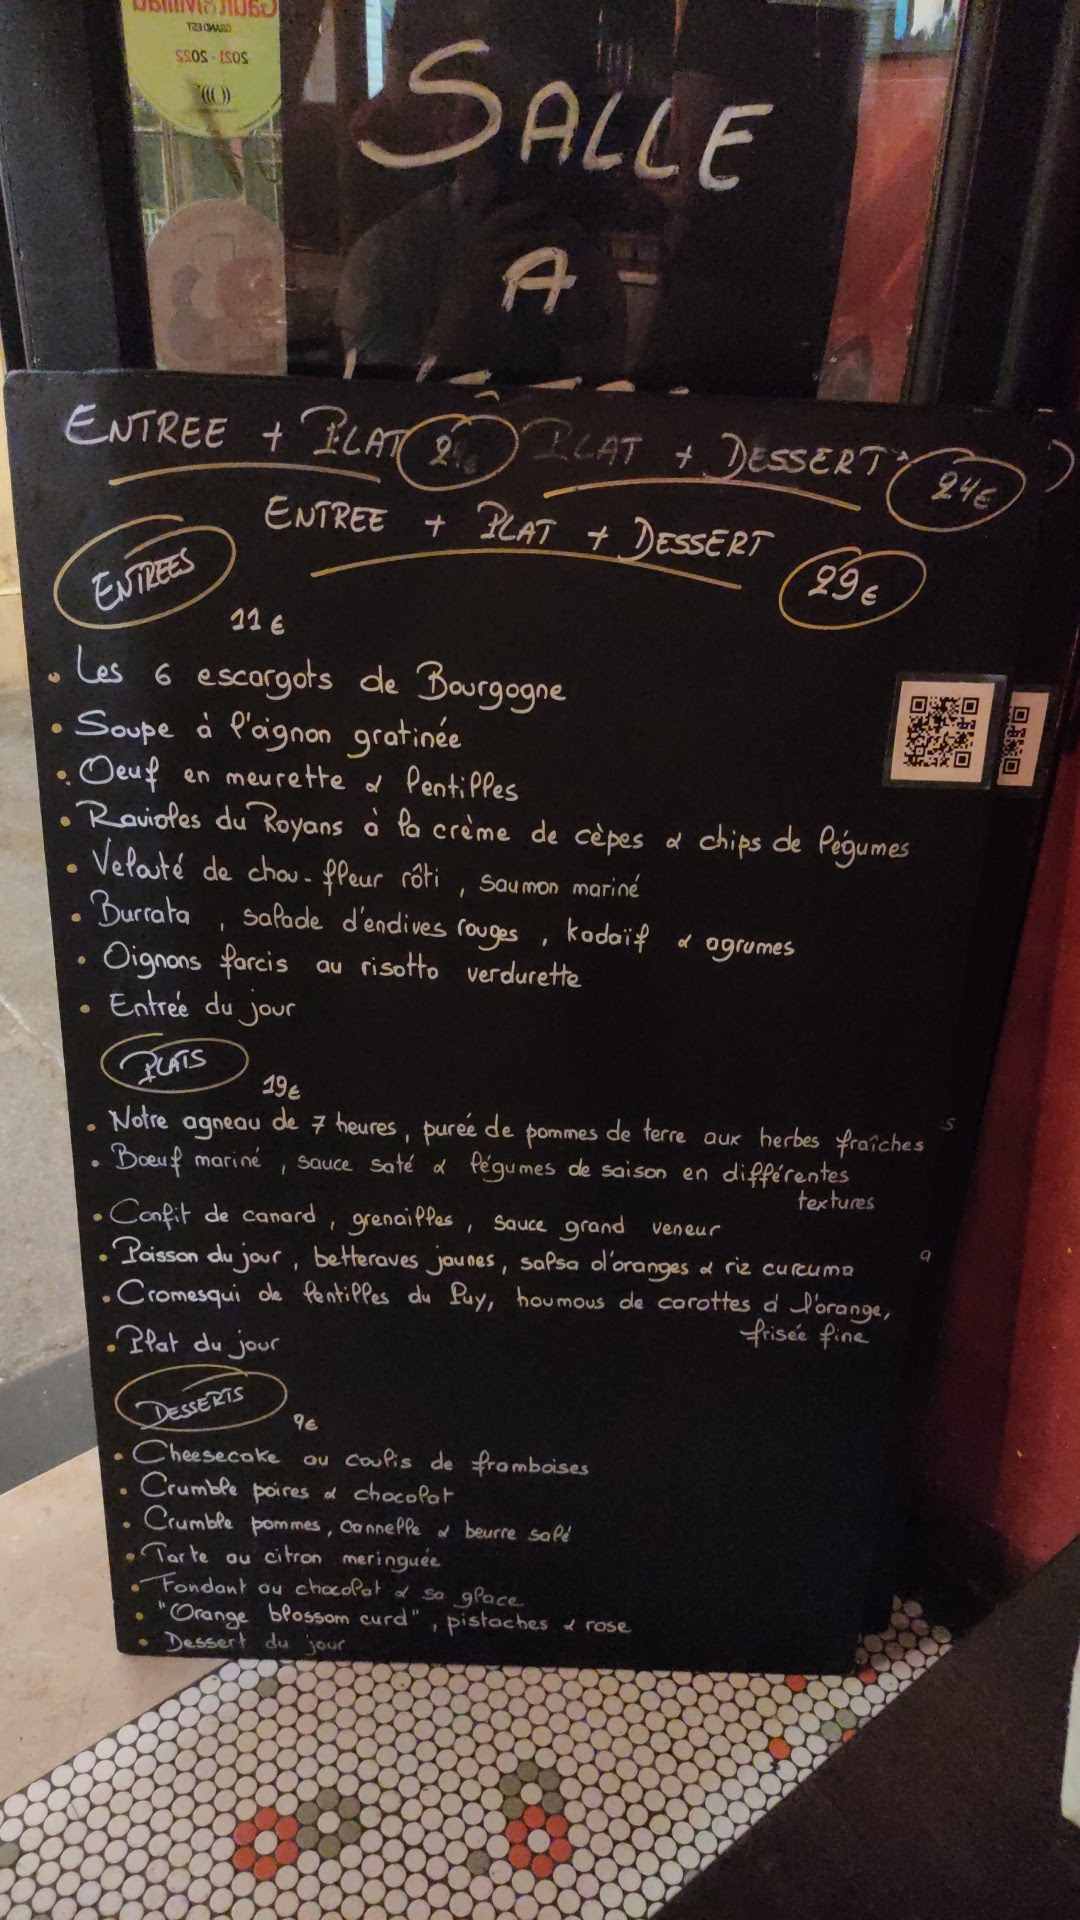 Gault&Millau
GRAND EST
2021 - 2022
SALLE
A
ENTREE + PLAT
PLAT + DESSERT 24€
ENTREE + PLAT + DESSERT 29€
ENTREES
11€
Les 6 escargots de Bourgogne
Soupe à l'oignon gratinée
Oeuf en meurette & lentilles
Ravioles du Royans à la crème de cèpes & chips de légumes
Velouté de chou-fleur rôti, saumon mariné
Burrata, salade d'endives rouges, kadaïf & agrumes
Oignons farcis au risotto verdurette
Entrée du jour
PLATS
19€
Notre agneau de 7 heures, purée de pommes de terre aux herbes fraîches
Boeuf mariné, sauce saté & légumes de saison en différentes
textures
Confit de canard, grenailles, sauce grand veneur
Poisson du jour, betteraves jaunes, salsa d'oranges & riz curcuma
Cromesqui de lentilles du Puy, houmous de carottes à l'orange,
frisée fine
Plat du jour
DESSERTS
9€
Cheesecake au coulis de framboises
Crumble poires & chocolat
Crumble pommes, cannelle & beurre salé
Tarte au citron meringuée
Fondant au chocolat & sa glace
"Orange blossom curd", pistaches & rose
Dessert du jour